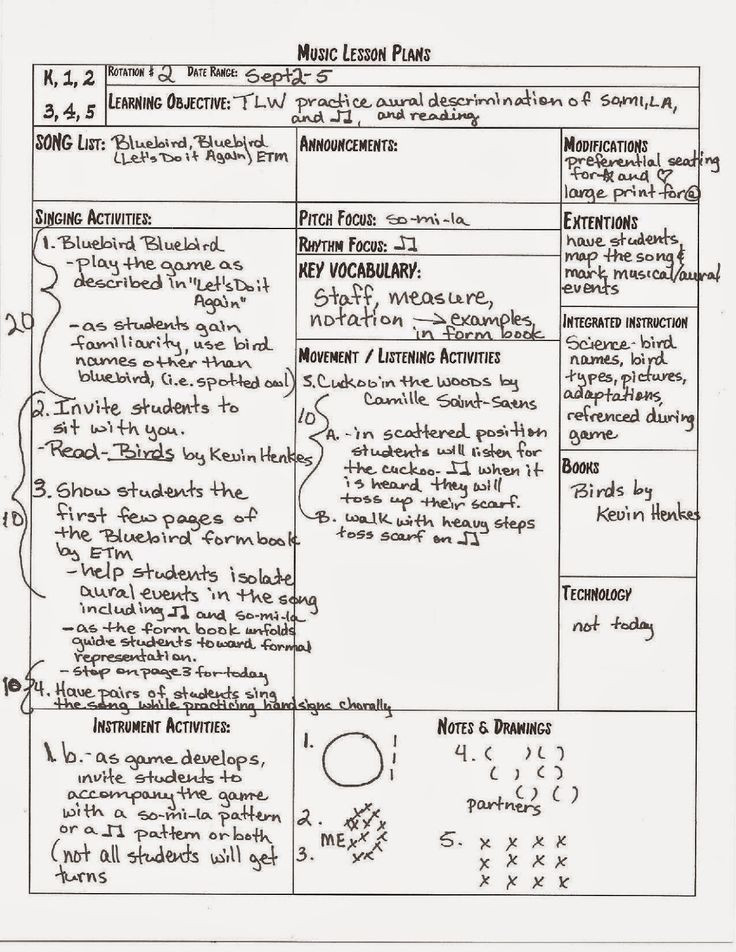 MUSIC LESSON PLANS
K, 1, 2
3, 4, 5
ROTATION # 2 DATE RANGE: Sept 2-5
LEARNING OBJECTIVE: TLW practice aural descrimination of so,mi,LA,
and ♫, and reading
SONG LIST: Bluebird, Bluebird
(Let's Do it Again) ETM
ANNOUNCEMENTS:
MODIFICATIONS
preferential seating
for ☆ and ♡
large print for @
SINGING ACTIVITIES:
20
1. Bluebird Bluebird
-play the game as
described in "Let's Do it
Again"
-as students gain
familiarity, use bird
names other than
bluebird, (i.e. spotted owl)
10
2. Invite students to
sit with you.
-Read- Birds by Kevin Henkes
3. Show students the
first few pages of
the Bluebird form book
by ETM
-help students isolate
aural events in the song
including ♫ and so-mi-la
-as the form book unfolds
guide students toward formal
representation.
- stop on page 3 for today
10
4. Have pairs of students sing
the song while practicing handsigns chorally
PITCH FOCUS: so-mi-la
RHYTHM FOCUS: ♫
KEY VOCABULARY:
Staff, measure,
notation → examples,
in form book
MOVEMENT / LISTENING ACTIVITIES
5. Cukoo in the woods by
Camille Saint-Saens
10
A. -in scattered position
students will listen for
the cuckoo- ♫ when it
is heard they will
toss up their scarf.
B. walk with heavy steps
toss scarf on ♫
EXTENTIONS
have students
map the song &
mark musical/aural
events
INTEGRATED INSTRUCTION
Science- bird
names, bird
types, pictures,
adaptations,
refrenced during
game
BOOKS
Birds by
Kevin Henkes
TECHNOLOGY
not today
INSTRUMENT ACTIVITIES:
1. b.- as game develops,
invite students to
accompany the game
with a so-mi-la pattern
or a ♫ pattern or both
(not all students will get
turns
NOTES & DRAWINGS
1.
2.
ME
3.
4. ( ) ( )
( ) ( )
( ) ( )
partners
5. x x x x
x x x x
x x x x